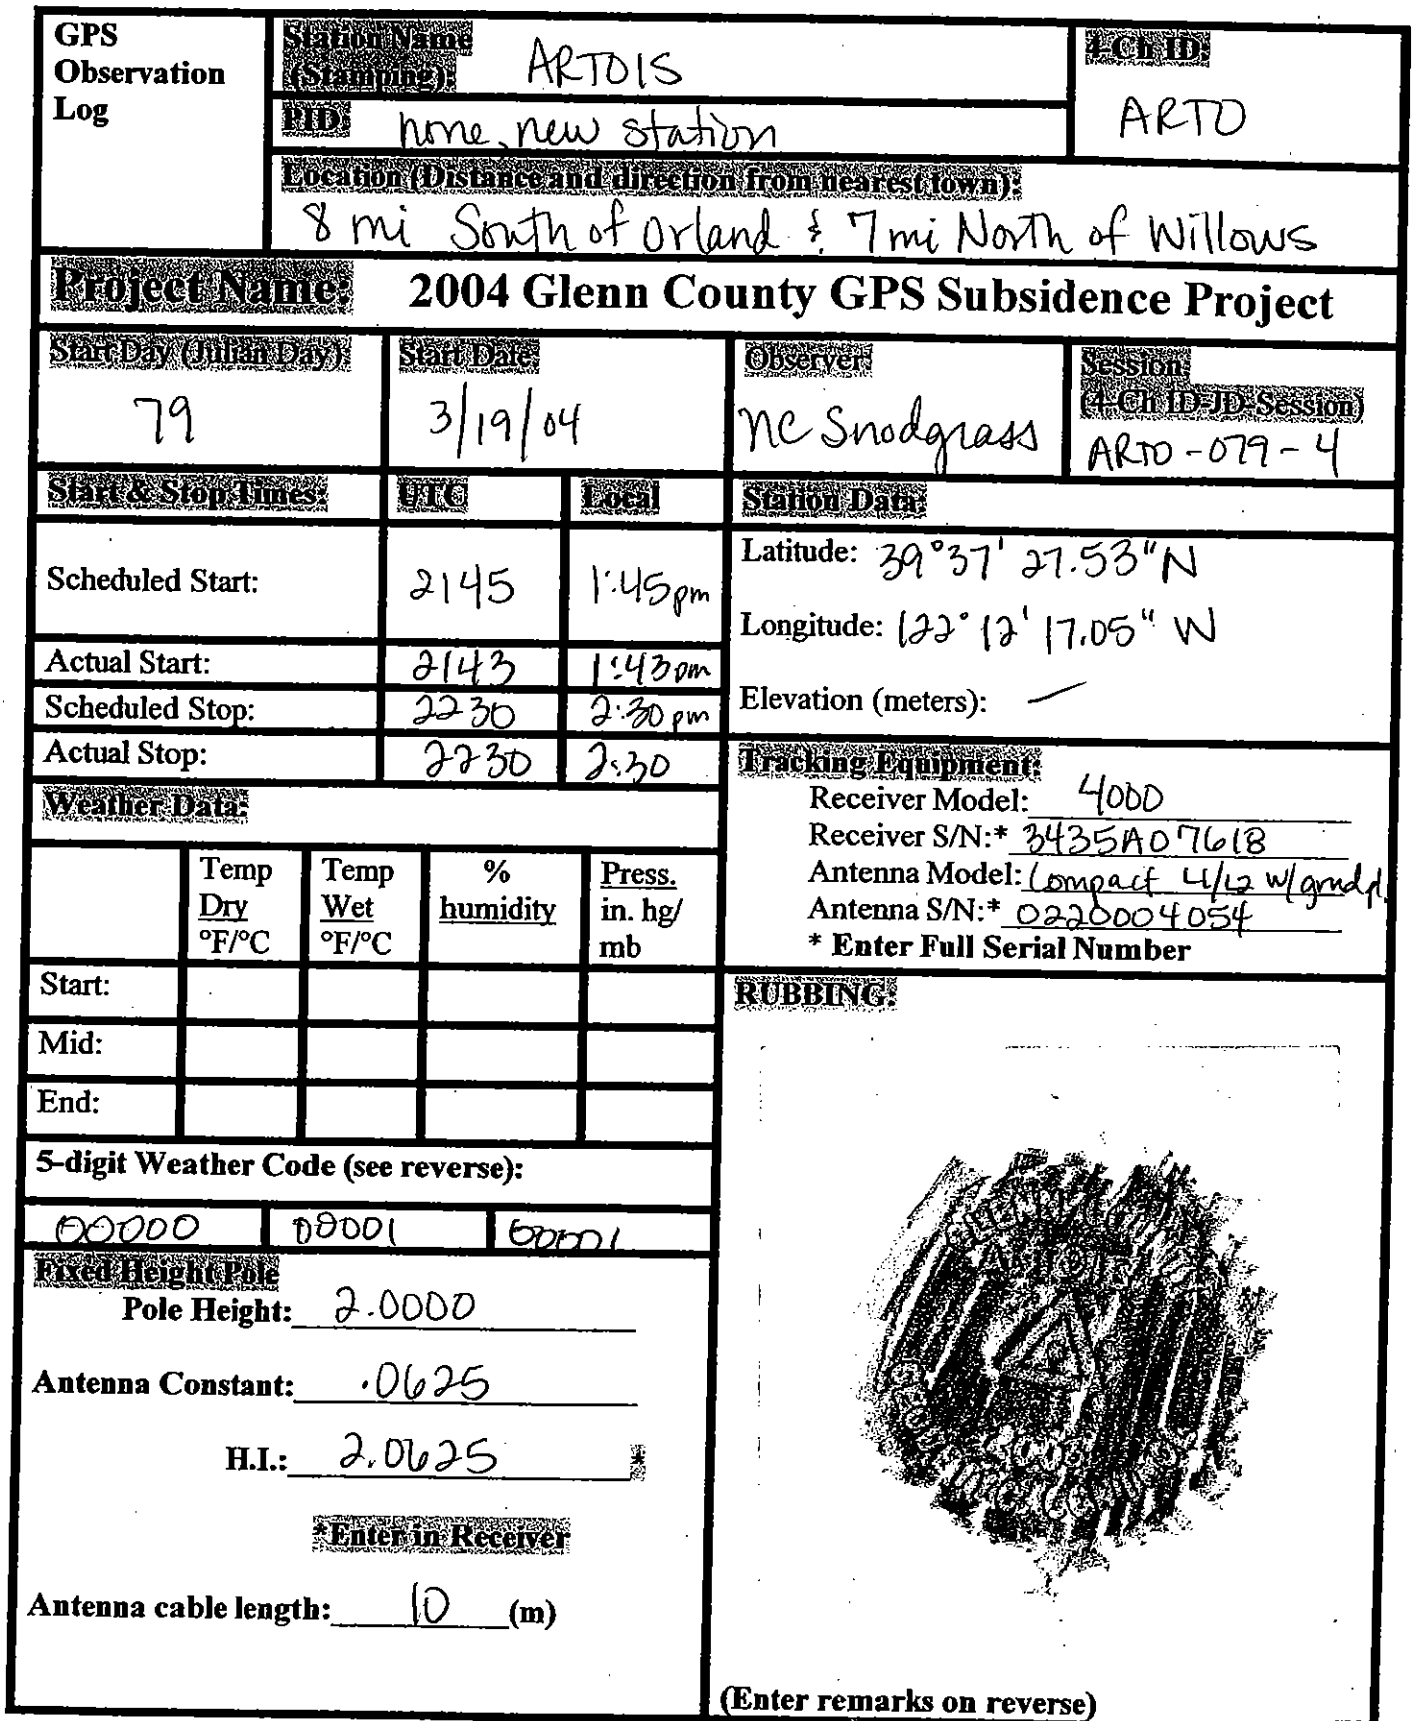 GPS
Observation
Log
Station Name
(Stamping): ARTOIS
4-Ch ID:
ARTO
PID: none, new station
Location (Distance and direction from nearest town):
8 mi South of Orland & 7 mi North of Willows
Project Name: 2004 Glenn County GPS Subsidence Project
Start Day (Julian Day):
79
Start Date:
3/19/04
Observer:
NC Snodgrass
Session:
(4-Ch ID-JD-Session)
ARTO-079-4
Start & Stop Times: UTC Local
Scheduled Start: 2145 1:45pm
Actual Start: 2143 1:43pm
Scheduled Stop: 2230 2:30pm
Actual Stop: 2230 2:30
Station Data:
Latitude: 39°37' 27.53"N
Longitude: 122° 12' 17.05" W
Elevation (meters): —
Tracking Equipment:
Receiver Model: 4000
Receiver S/N:* 3435A07618
Antenna Model: Compact L1/L2 w/grndpl.
Antenna S/N:* 0220004054
* Enter Full Serial Number
Weather Data:
Temp Dry °F/°C
Temp Wet °F/°C
% humidity
Press. in. hg/ mb
Start:
Mid:
End:
5-digit Weather Code (see reverse):
00000 00001 00001
Fixed Height Pole
Pole Height: 2.0000
Antenna Constant: .0625
H.I.: 2.0625 *
*Enter in Receiver
Antenna cable length: 10 (m)
RUBBING:
(Enter remarks on reverse)